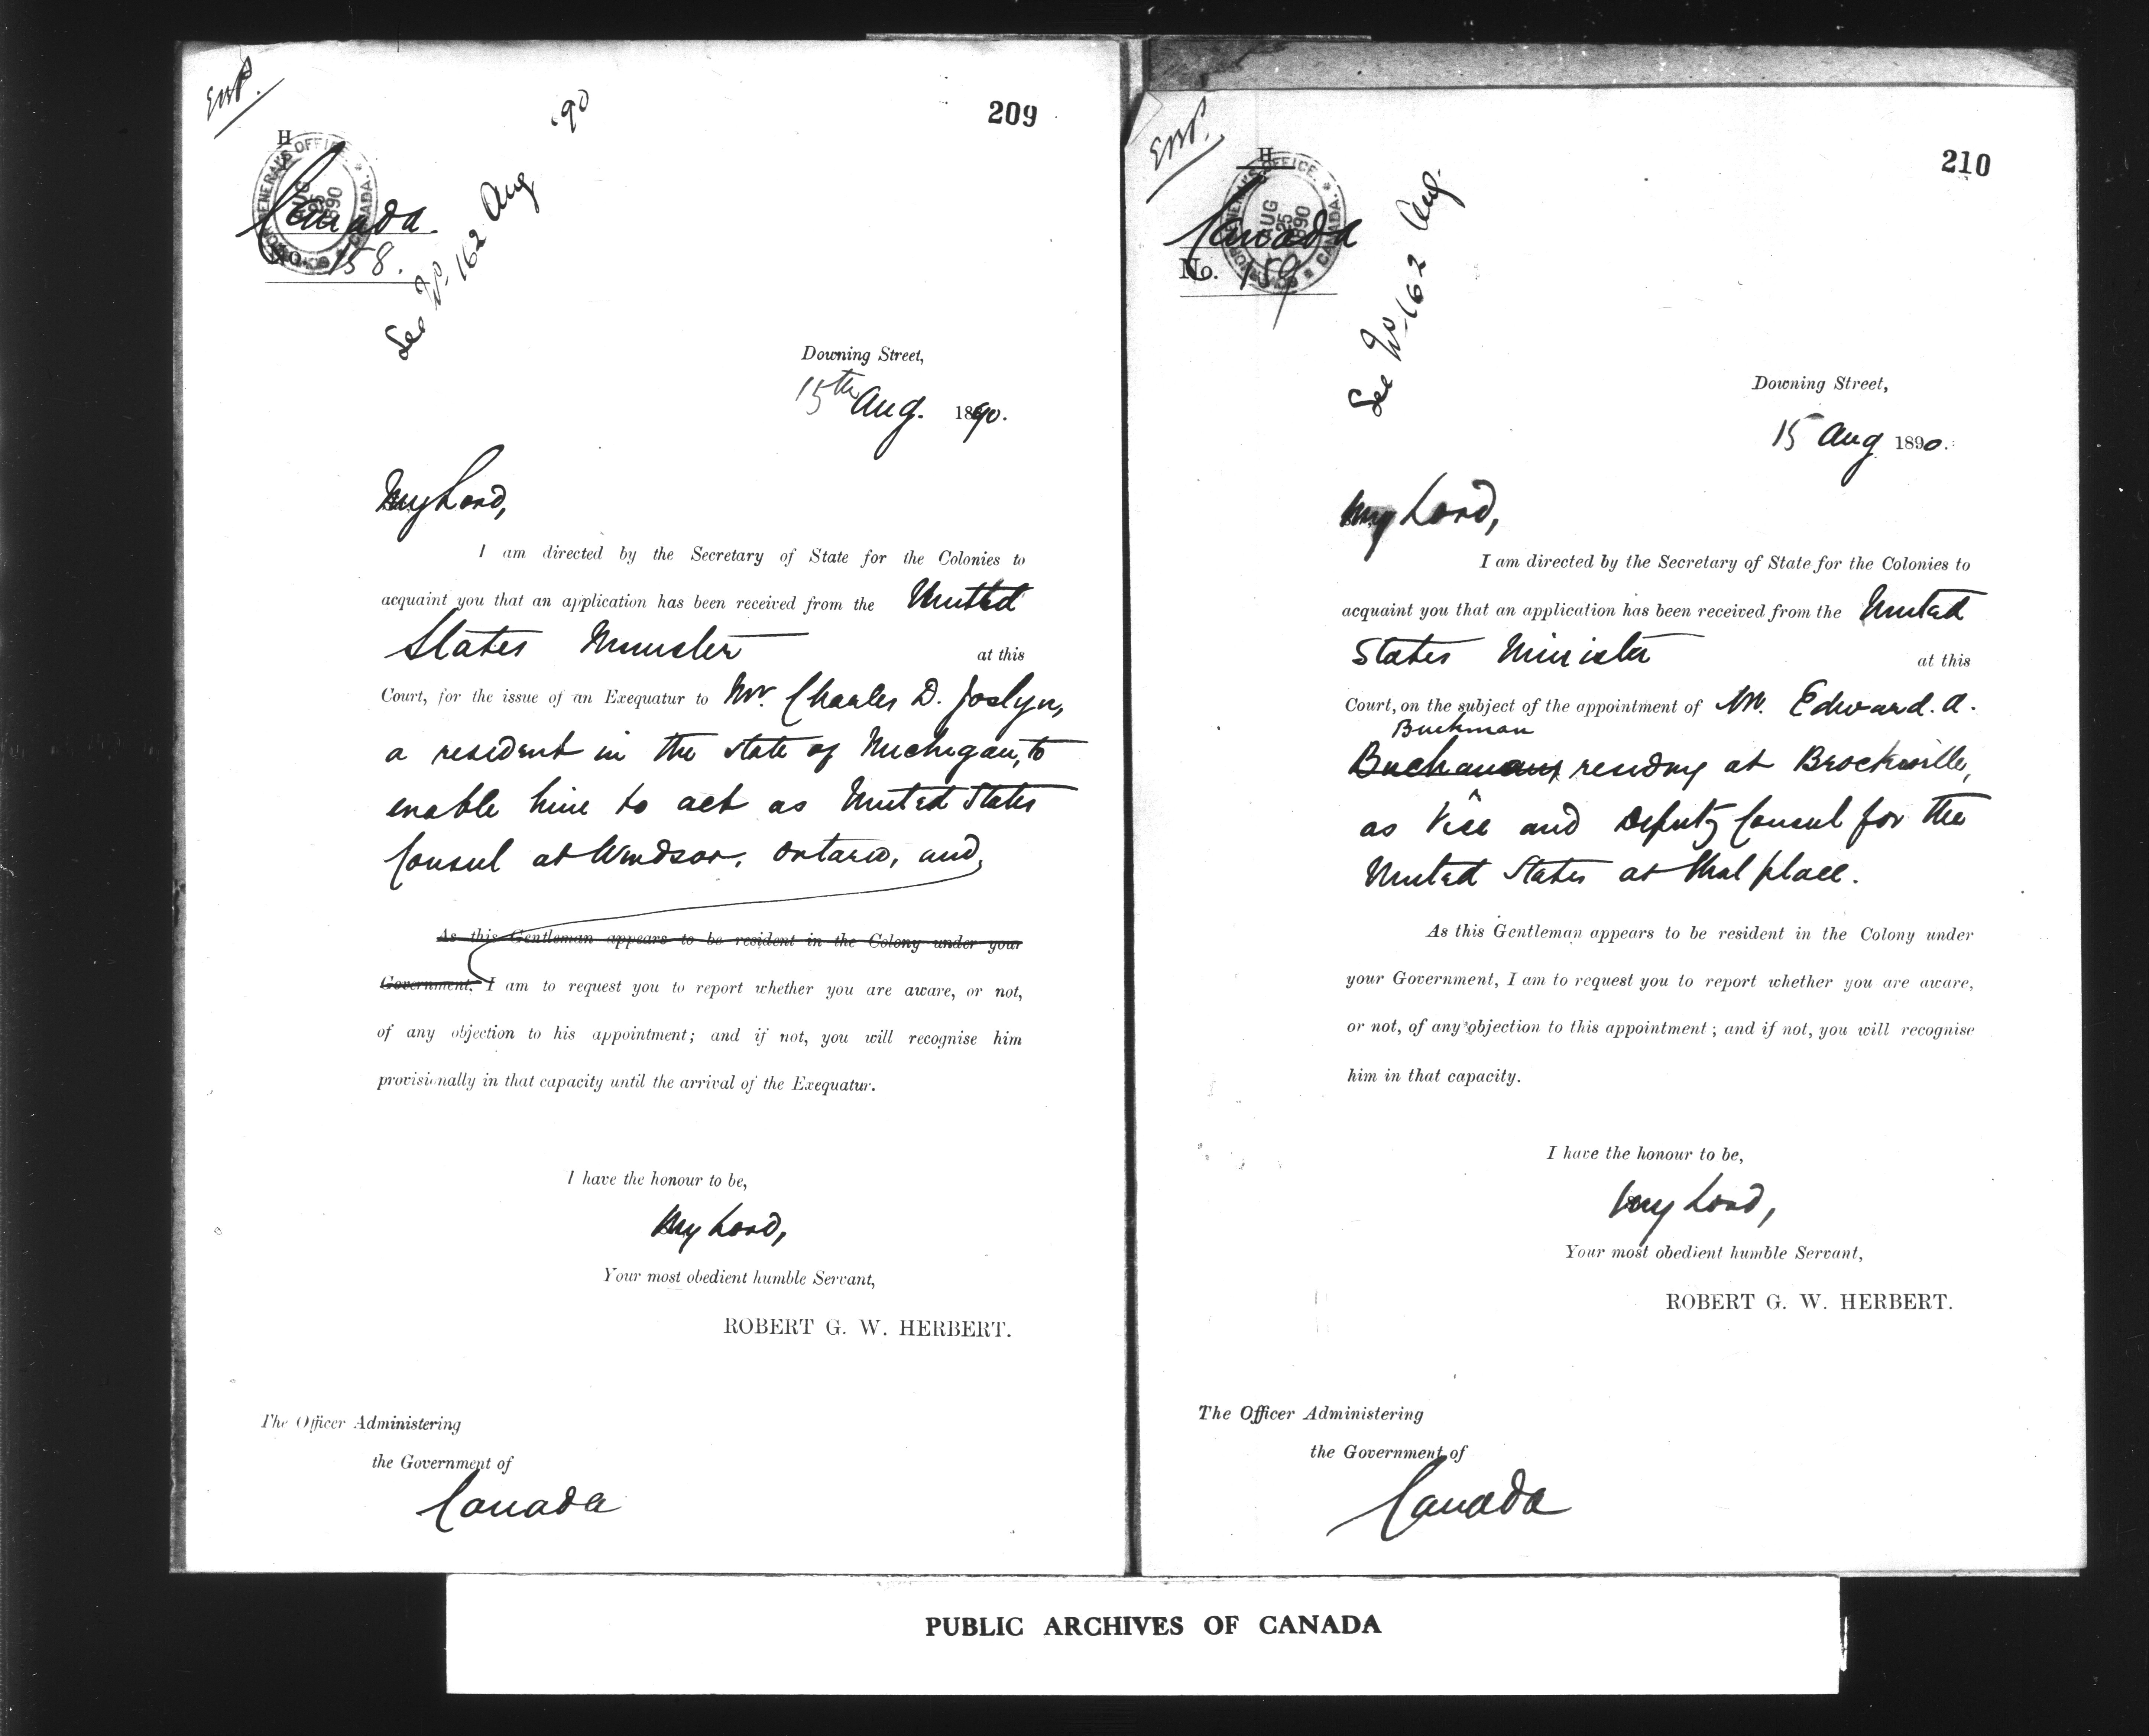 209
H
GOVERNOR GENERAL'S OFFICE. CANADA.
AUG
25
1890
Canada.
No. 158.
See No 162 Aug '90
Downing Street,
15th Aug. 1890.
My Lord,
I am directed by the Secretary of State for the Colonies to
acquaint you that an application has been received from the United
States Minister at this
Court, for the issue of an Exequatur to Mr. Charles D. Joslyn,
a resident in the State of Michigan, to
enable him to act as United States
Consul at Windsor, Ontario, and
As this Gentleman appears to be resident in the Colony under your
Government, I am to request you to report whether you are aware, or not,
of any objection to his appointment; and if not, you will recognise him
provisionally in that capacity until the arrival of the Exequatur.
I have the honour to be,
My Lord,
Your most obedient humble Servant,
ROBERT G. W. HERBERT.
The Officer Administering
the Government of
Canada
210
H
GOVERNOR GENERAL'S OFFICE. CANADA.
AUG
25
1890
Canada
No. 159
See No 162 Aug.
Downing Street,
15 Aug 1890.
My Lord,
I am directed by the Secretary of State for the Colonies to
acquaint you that an application has been received from the United
States Minister at this
Court, on the subject of the appointment of Mr. Edward. A.
Buckman
Buchanan, residing at Brockville,
as Vice and Deputy Consul for the
United States at that place.
As this Gentleman appears to be resident in the Colony under
your Government, I am to request you to report whether you are aware,
or not, of any objection to this appointment; and if not, you will recognise
him in that capacity.
I have the honour to be,
My Lord,
Your most obedient humble Servant,
ROBERT G. W. HERBERT.
The Officer Administering
the Government of
Canada
PUBLIC ARCHIVES OF CANADA